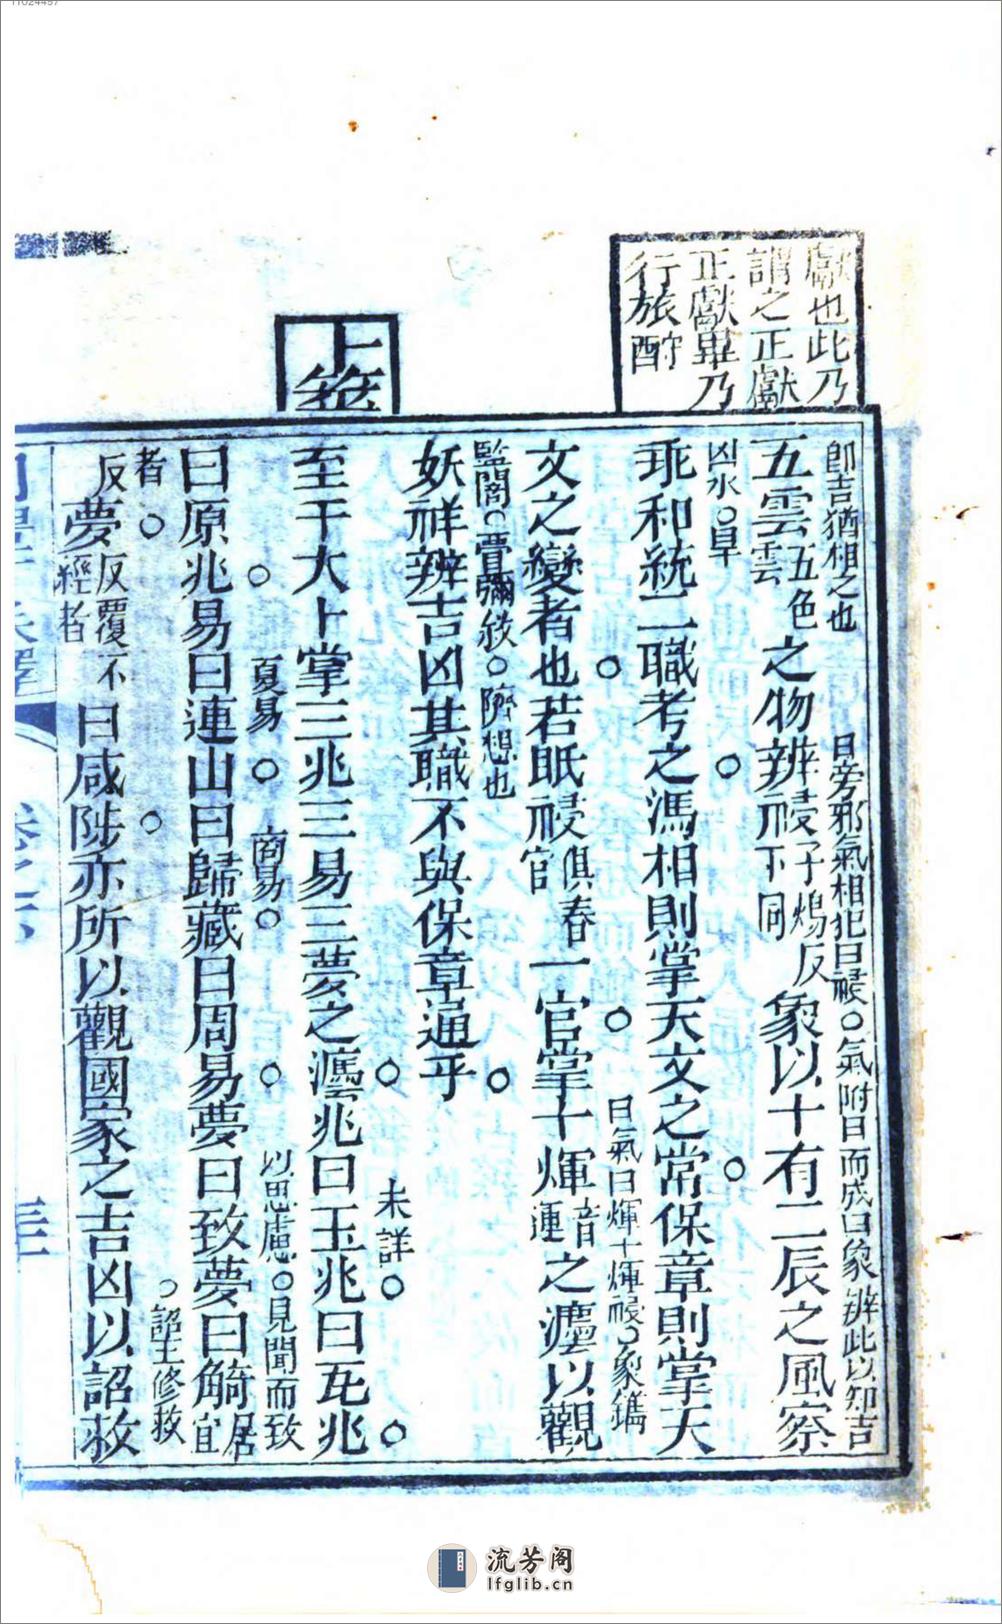 11024497
獻也此乃
謂之正獻
正獻畢乃
行旅酧
上筮
卽吉猶相之也　日旁邪氣相犯曰祲○氣附日而成曰象辨此以知吉
五雲雲五色之物辨祲子煬反下同象以十有二辰之風察
凶水○旱
乖和統二職考之馮相則掌天文之常保章則掌天
日氣曰煇十煇祲○象鑴
文之變者也若眡祲官俱春一官掌十煇音運之灋以觀
監闇○瞢彌敘○隮想也
妖祥辨吉凶其職不與保章通乎
未詳○
至于大卜掌三兆三易三夢之灋兆曰玉兆曰瓦兆
夏易　商易○　以思慮○見聞而致
曰原兆易曰連山曰歸藏曰周易夢曰致夢曰觭居宜
者○　○詔王修救
反夢反覆不經者曰咸陟亦所以觀國家之吉凶以詔救
卷之
流芳阁
lfglib.cn